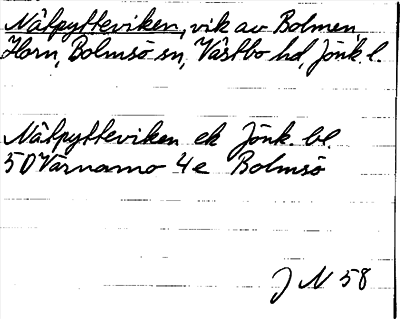 Nätpytteviken, vik av Bolmen,
Horn, Bolmsö sn, Västbo hd, Jönk. l.
Nätpytteviken ek Jönk. bl.
5D Värnamo 4e Bolmsö
J N 58